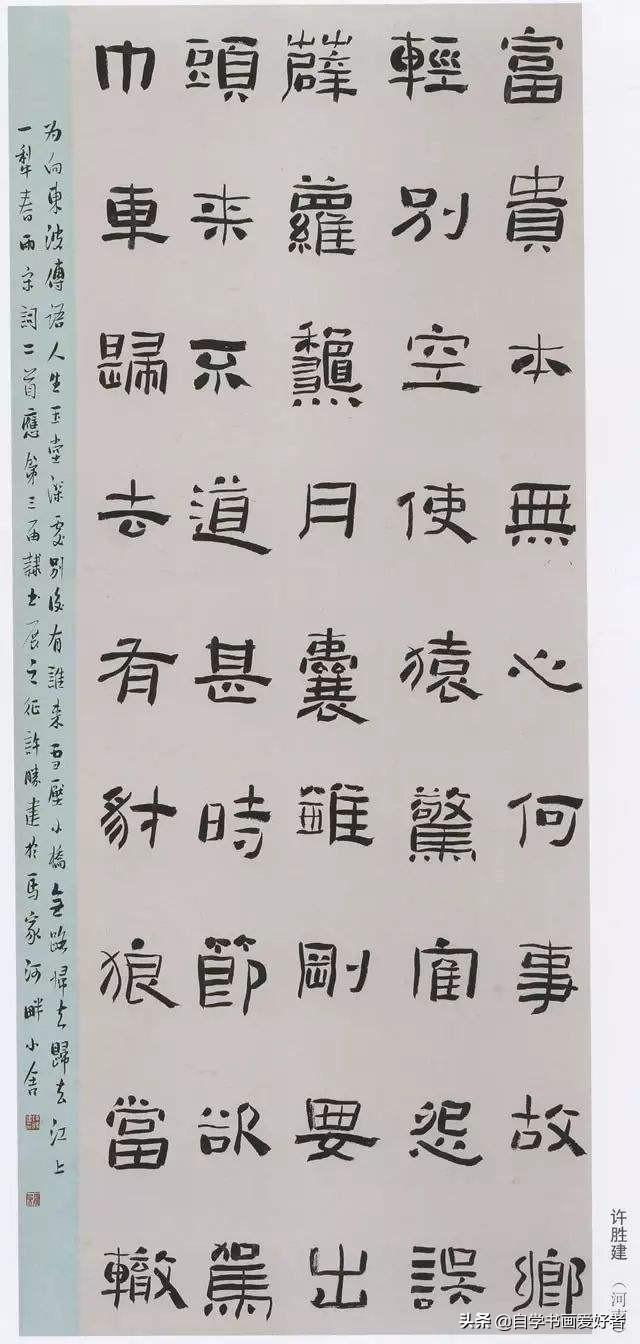 富貴本無心何事故鄉
輕別空使猿驚寉怨誤
薜蘿龝月囊錐剛要出
頭来不道甚時節欲駕
巾車歸去有豺狼當轍
为向東坡傳语人生玉堂深處別後有誰来雪壓小橋無路歸去歸去江上
一犁春雨宋詞二首應第三届隸书展之征許勝建於馬家河畔小舍
许胜建（河南
头条 @自学书画爱好者